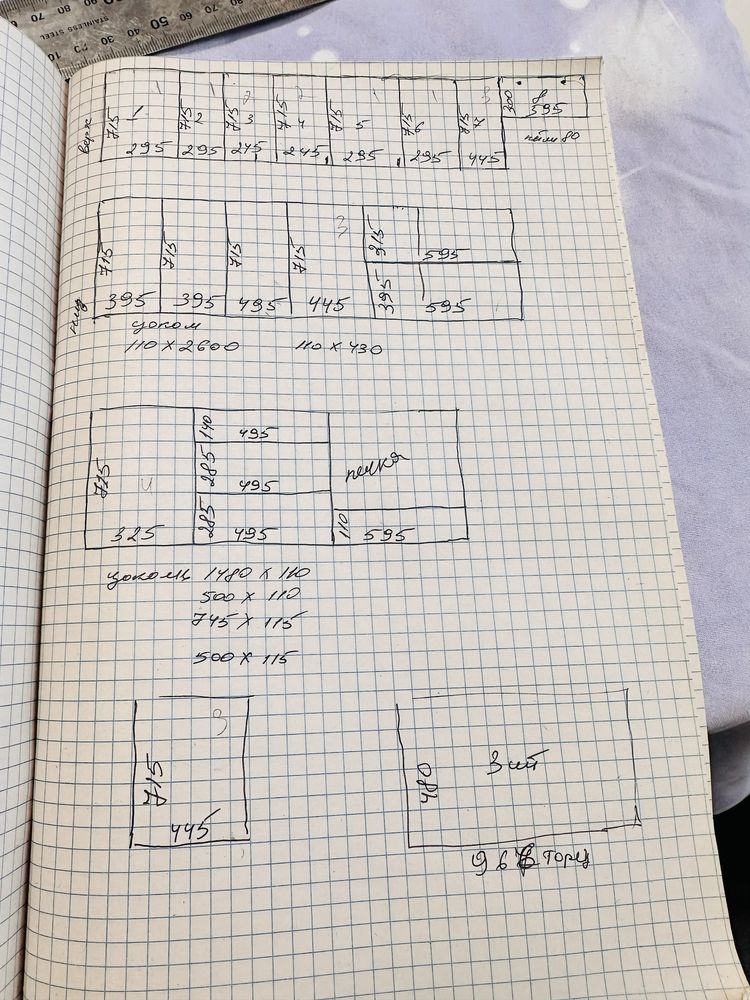 STAINLESS STEEL
верх 715 1 295 715 2 295 715 3 245 715 4 245 715 5 295 715 6 295 715 7 445 200 8 395
низ 715 395 715 395 715 495 715 3 445 315 595
395 595
цоколь
110 x 2600 110 x 430
715 325 140 495 печка
285 495
285 495 110 595
цоколь 1480 x 110
500 x 110
745 x 115
500 x 115
715 3 445
480 3 шт
торец